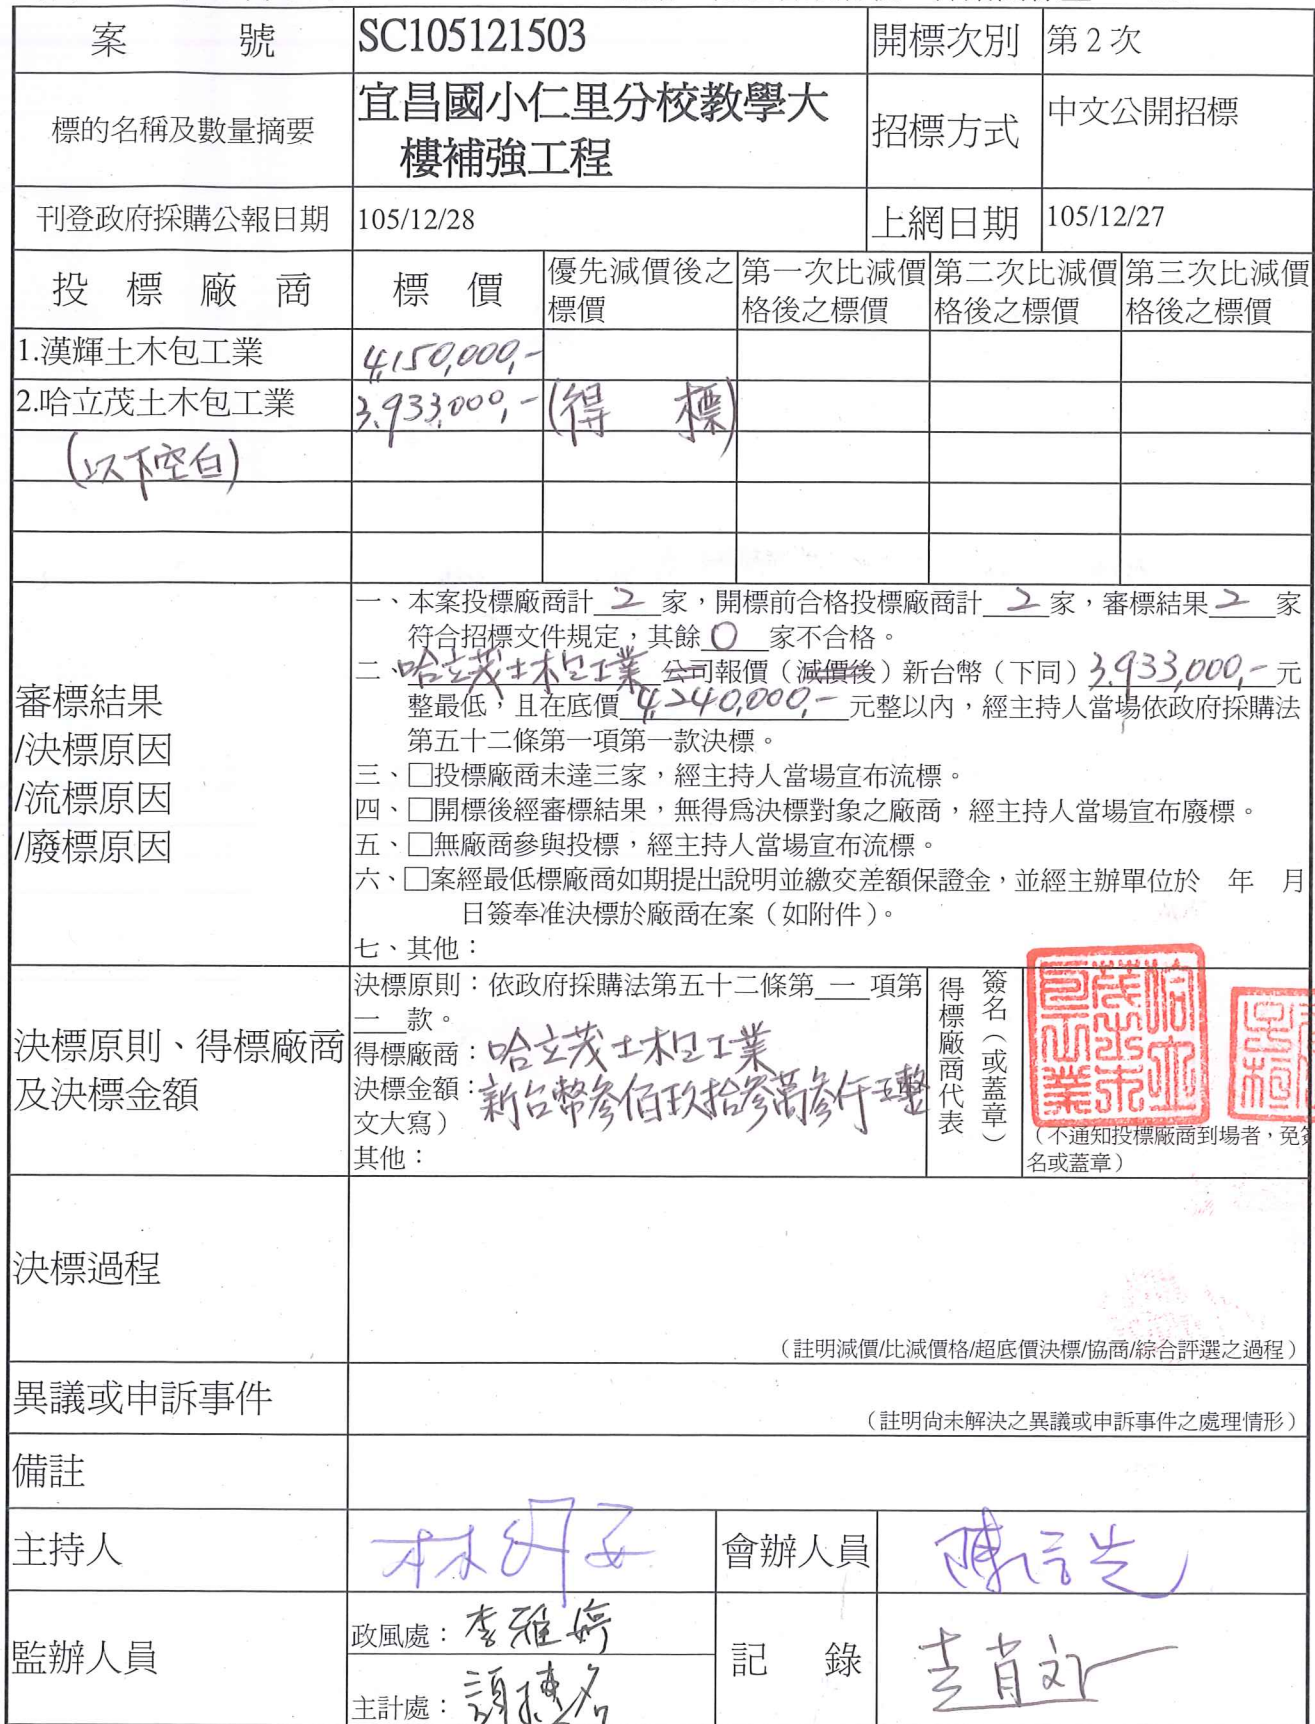 案 號
SC105121503
開標次別
第2次
標的名稱及數量摘要
宜昌國小仁里分校教學大
樓補強工程
招標方式
中文公開招標
刊登政府採購公報日期
105/12/28
上網日期
105/12/27
投 標 廠 商
標 價
優先減價後之
標價
第一次比減價
格後之標價
第二次比減價
格後之標價
第三次比減價
格後之標價
1.漢輝土木包工業
4,150,000,-
2.哈立茂土木包工業
3,933,000,-
(得 標)
(以下空白)
審標結果
/決標原因
/流標原因
/廢標原因
一、本案投標廠商計 2 家，開標前合格投標廠商計 2 家，審標結果 2 家
符合招標文件規定，其餘 0 家不合格。
二、哈立茂土木包工業 公司報價（減價後）新台幣（下同）3,933,000,- 元
整最低，且在底價 4,240,000,- 元整以內，經主持人當場依政府採購法
第五十二條第一項第一款決標。
三、□投標廠商未達三家，經主持人當場宣布流標。
四、□開標後經審標結果，無得為決標對象之廠商，經主持人當場宣布廢標。
五、□無廠商參與投標，經主持人當場宣布流標。
六、□案經最低標廠商如期提出說明並繳交差額保證金，並經主辦單位於 年 月
日簽奉准決標於廠商在案（如附件）。
七、其他：
決標原則、得標廠商
及決標金額
決標原則：依政府採購法第五十二條第 一 項第
一 款。
得標廠商：哈立茂土木包工業
決標金額：新台幣參佰玖拾參萬參仟元整
文大寫）
其他：
得標廠商代表
簽名（或蓋章）
哈立茂土木包工業
（不通知投標廠商到場者，免簽
名或蓋章）
決標過程
（註明減價/比減價格/超底價決標/協商/綜合評選之過程）
異議或申訴事件
（註明尚未解決之異議或申訴事件之處理情形）
備註
主持人
會辦人員
陳信先
監辦人員
政風處：李雅婷
主計處：
記 錄